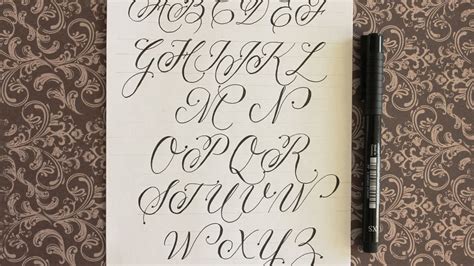 A B C D E F
G H I J K L
M N
O P Q R
S T U V W
W X Y Z
XS